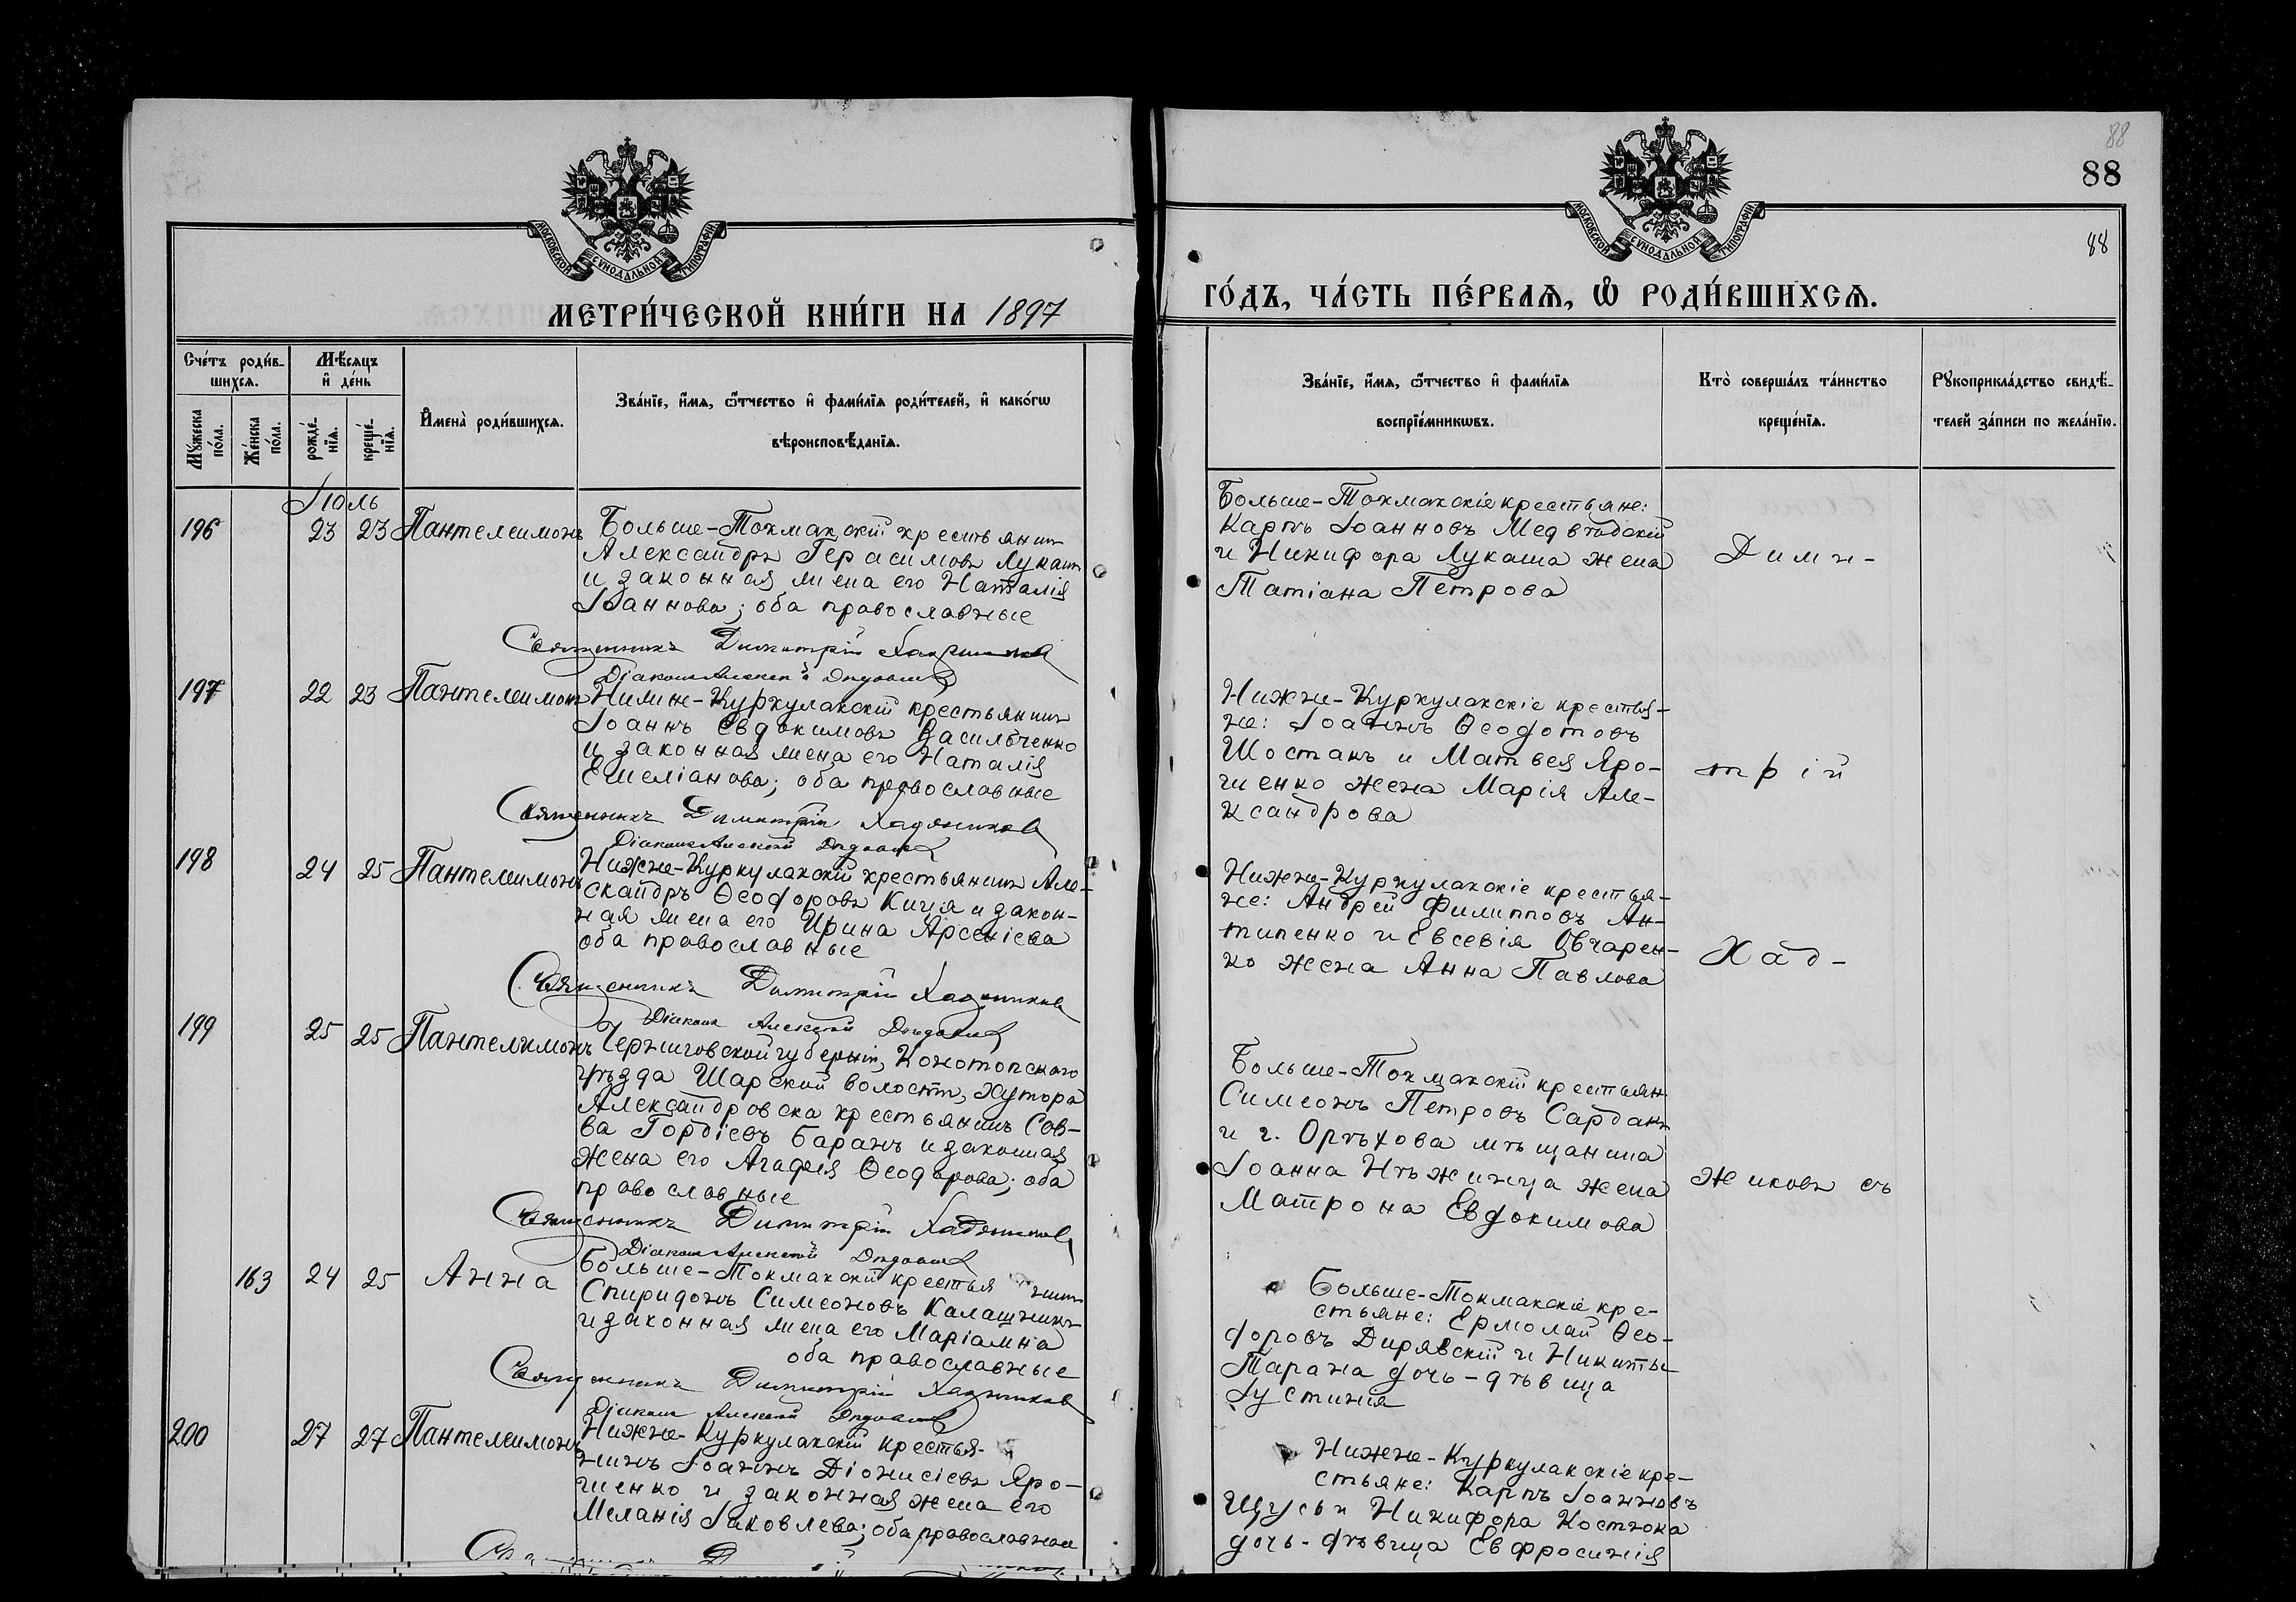 88
88
88
МОСКОВСКОЙ СУНОДАЛЬНОЙ ТИПОГРАФІИ
МЕТРИ́ЧЕСКОЙ КНИ́ГИ НА 1897
Сче́тъ роди́в-
шихся.
Мѣ́сяцъ
и҆ де́нь
Мꙋ́жеска
по́ла.
Же́нска
по́ла.
рожде́-
нїя.
креще́-
нїя.
И҆мена̀ роди́вшихся.
Зва́нїе, и҆́мя, ѻ҆́тчество и҆ фами́лїя роди́телей, и҆ како́гѡ
вѣроисповѣ́данїя.
Іюль
196 23 23 Пантелеимонъ
Больше-Токмакскій крестьянинъ
Александръ Герасимовъ Лукашъ
и законная жена его Наталія
Іоаннова; оба православные
Священникъ Димитрій Хаджиновъ
Діаконъ Алексѣй
197 22 23 Пантелеимонъ
Нижне-Куркулакскій крестьянинъ
Іоаннъ Евдокимовъ Васильченко
и законная жена его Наталія
Емеліанова; оба православные
Священникъ Димитрій
Діаконъ Алексѣй
198 24 25 Пантелеимонъ
Нижне-Куркулакскій крестьянинъ Але-
ксандръ Ѳеодоровъ Куця и закон-
ная жена его Ирина Арсеніева
оба православные
Священникъ Димитрій
Діаконъ Алексѣй
199 25 25 Пантелимонъ
Черниговской губерніи, Конотопскаго
уѣзда Шарской волости, хутора
Александровска крестьянинъ Сав-
ва Гордіевъ Баранъ и законная
жена его Агафія Ѳеодорова; оба
православные
Священникъ Димитрій
Діаконъ Алексѣй
163 24 25 Анна
Больше-Токмакскій крестьянинъ
Спиридонъ Симеоновъ Калашникъ
и законная жена его Маріамна
оба православные
Священникъ Димитрій
Діаконъ Алексѣй
200 27 27 Пантелеимонъ
Нижне-Куркулакскій крестья-
нинъ Іоаннъ Діонисіевъ Яро-
шенко и законная жена его
Меланія Іаковлева; оба православные
МОСКОВСКОЙ СУНОДАЛЬНОЙ ТИПОГРАФІИ
ГО́ДЪ, ЧА́СТЬ ПЕ́РВАЯ, Ѡ҆ РОДИ́ВШИХСЯ.
Зва́нїе, и҆́мя, ѻ҆́тчество и҆ фами́лїя
воспрїе́мникѡвъ.
Кто̀ соверша́лъ та́инство
креще́нїя.
Рꙋкоприкла́дство свидѣ́-
телей за́писи по жела́нїю.
Больше-Токмакскіе крестьяне:
Карпъ Іоанновъ Медвѣдскій
и Никифора Лукаша жена
Татіана Петрова
Дими-
Нижне-Куркулакскіе крестья-
не: Іоаннъ Ѳеодотовъ
Шостакъ и Матвея Яро-
шенко жена Марія Але-
ксандрова
трій
Нижне-Куркулакскіе крестья-
не: Андрей Филипповъ Ан-
типенко и Евсевія Овчарен-
ко жена Анна Павлова
Хад-
Больше-Токмакскій крестьян.
Симеонъ Петровъ Сардакъ
и г. Орѣхова мѣщанина
Іоанна Нѣжинца жена
Матрона Евдокимова
жиковъ съ
Больше-Токмакскіе кре-
стьяне: Ермолай Ѳео-
доровъ Дирявскій и Никиты
Тарана дочь-дѣвица
Іустинія
Нижне-Куркулакскіе кре-
стьяне: Карпъ Іоанновъ
Щусь и Никифора Костюка
дочь-дѣвица Евфросинія